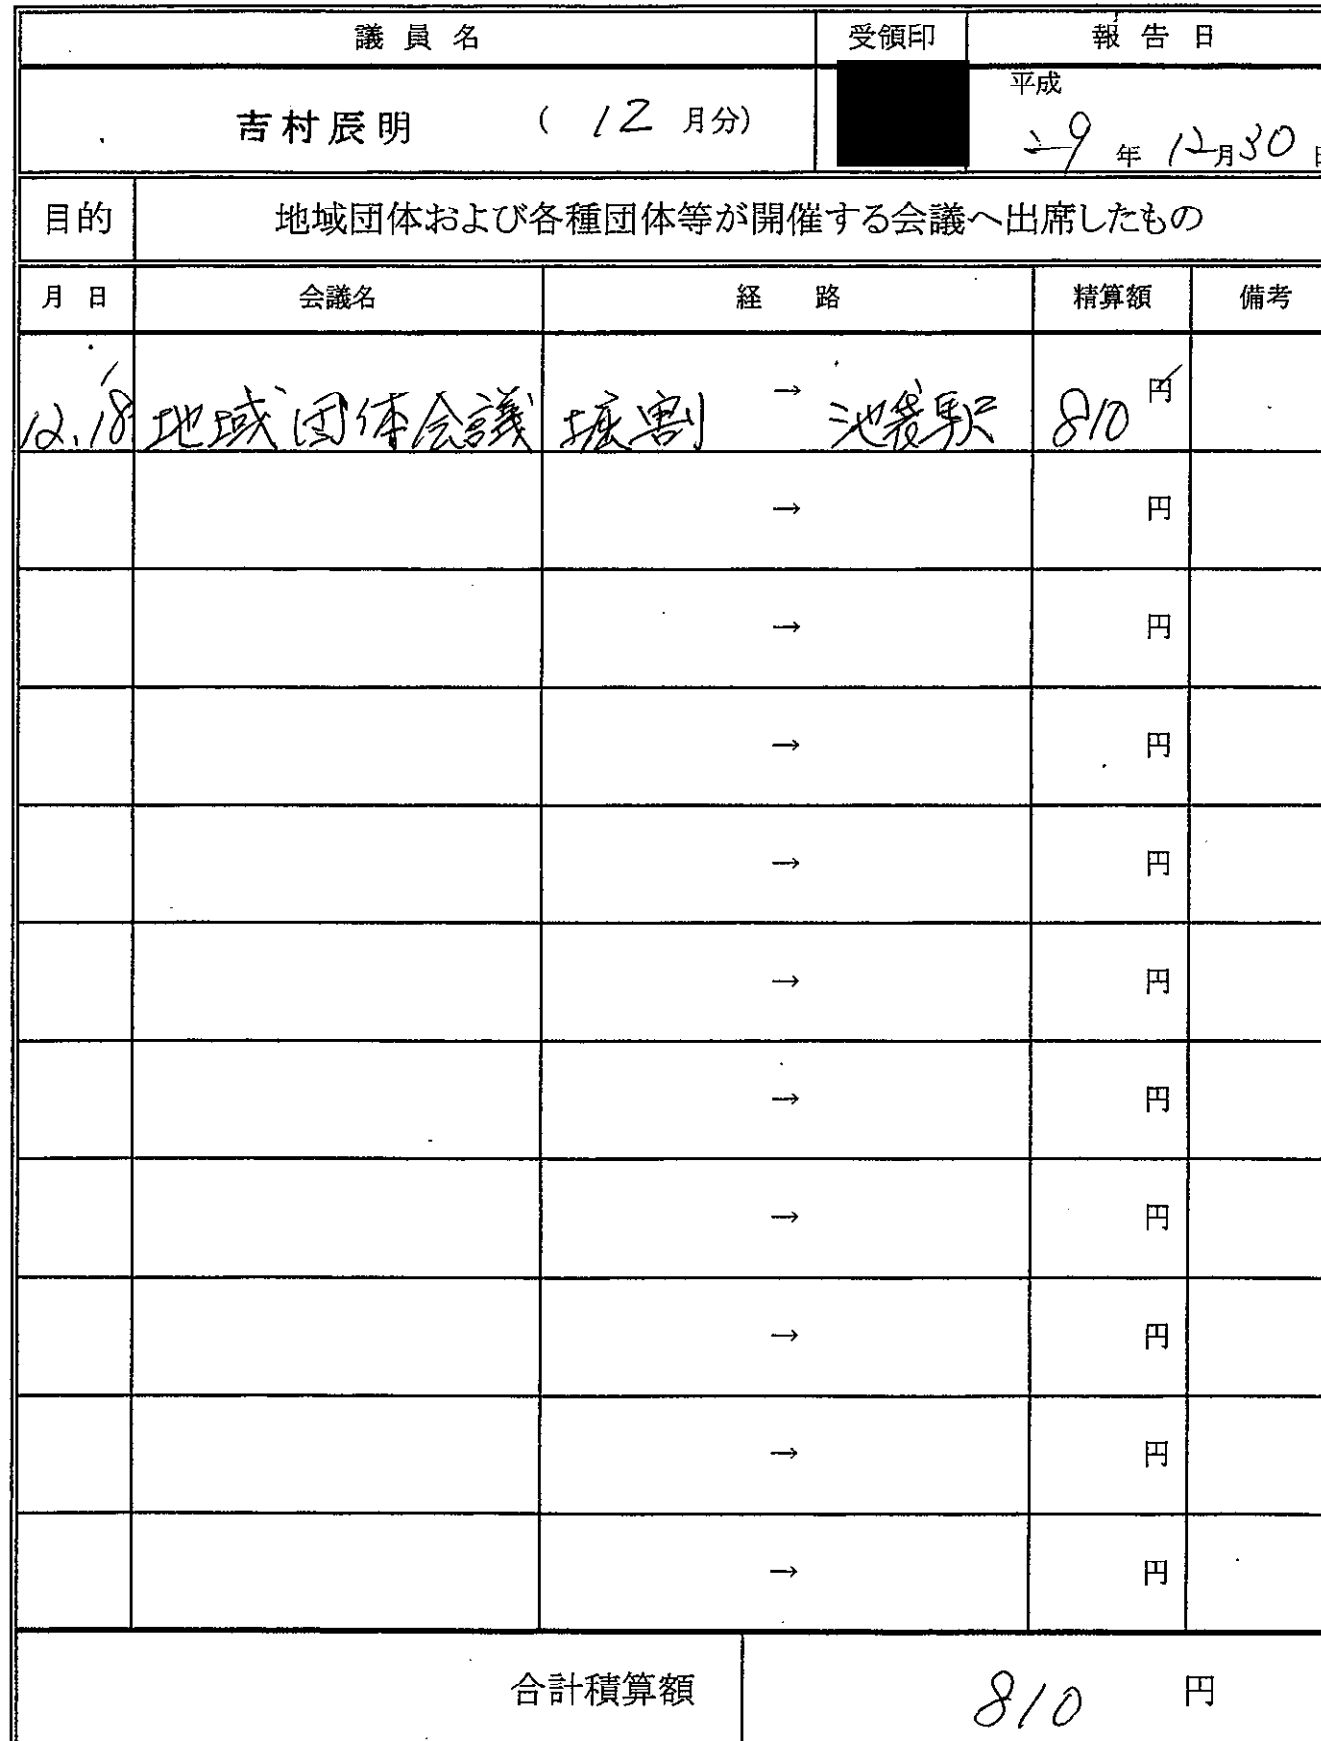 議員名 受領印 報告日
吉村辰明 ( 12 月分) 平成 29 年 12月30日
目的 地域団体および各種団体等が開催する会議へ出席したもの
月日 会議名 経路 精算額 備考
12.18 地域団体会議 堀割 → 池袋駅 810 円
→ 円
→ 円
→ 円
→ 円
→ 円
→ 円
→ 円
→ 円
→ 円
→ 円
合計積算額 810 円